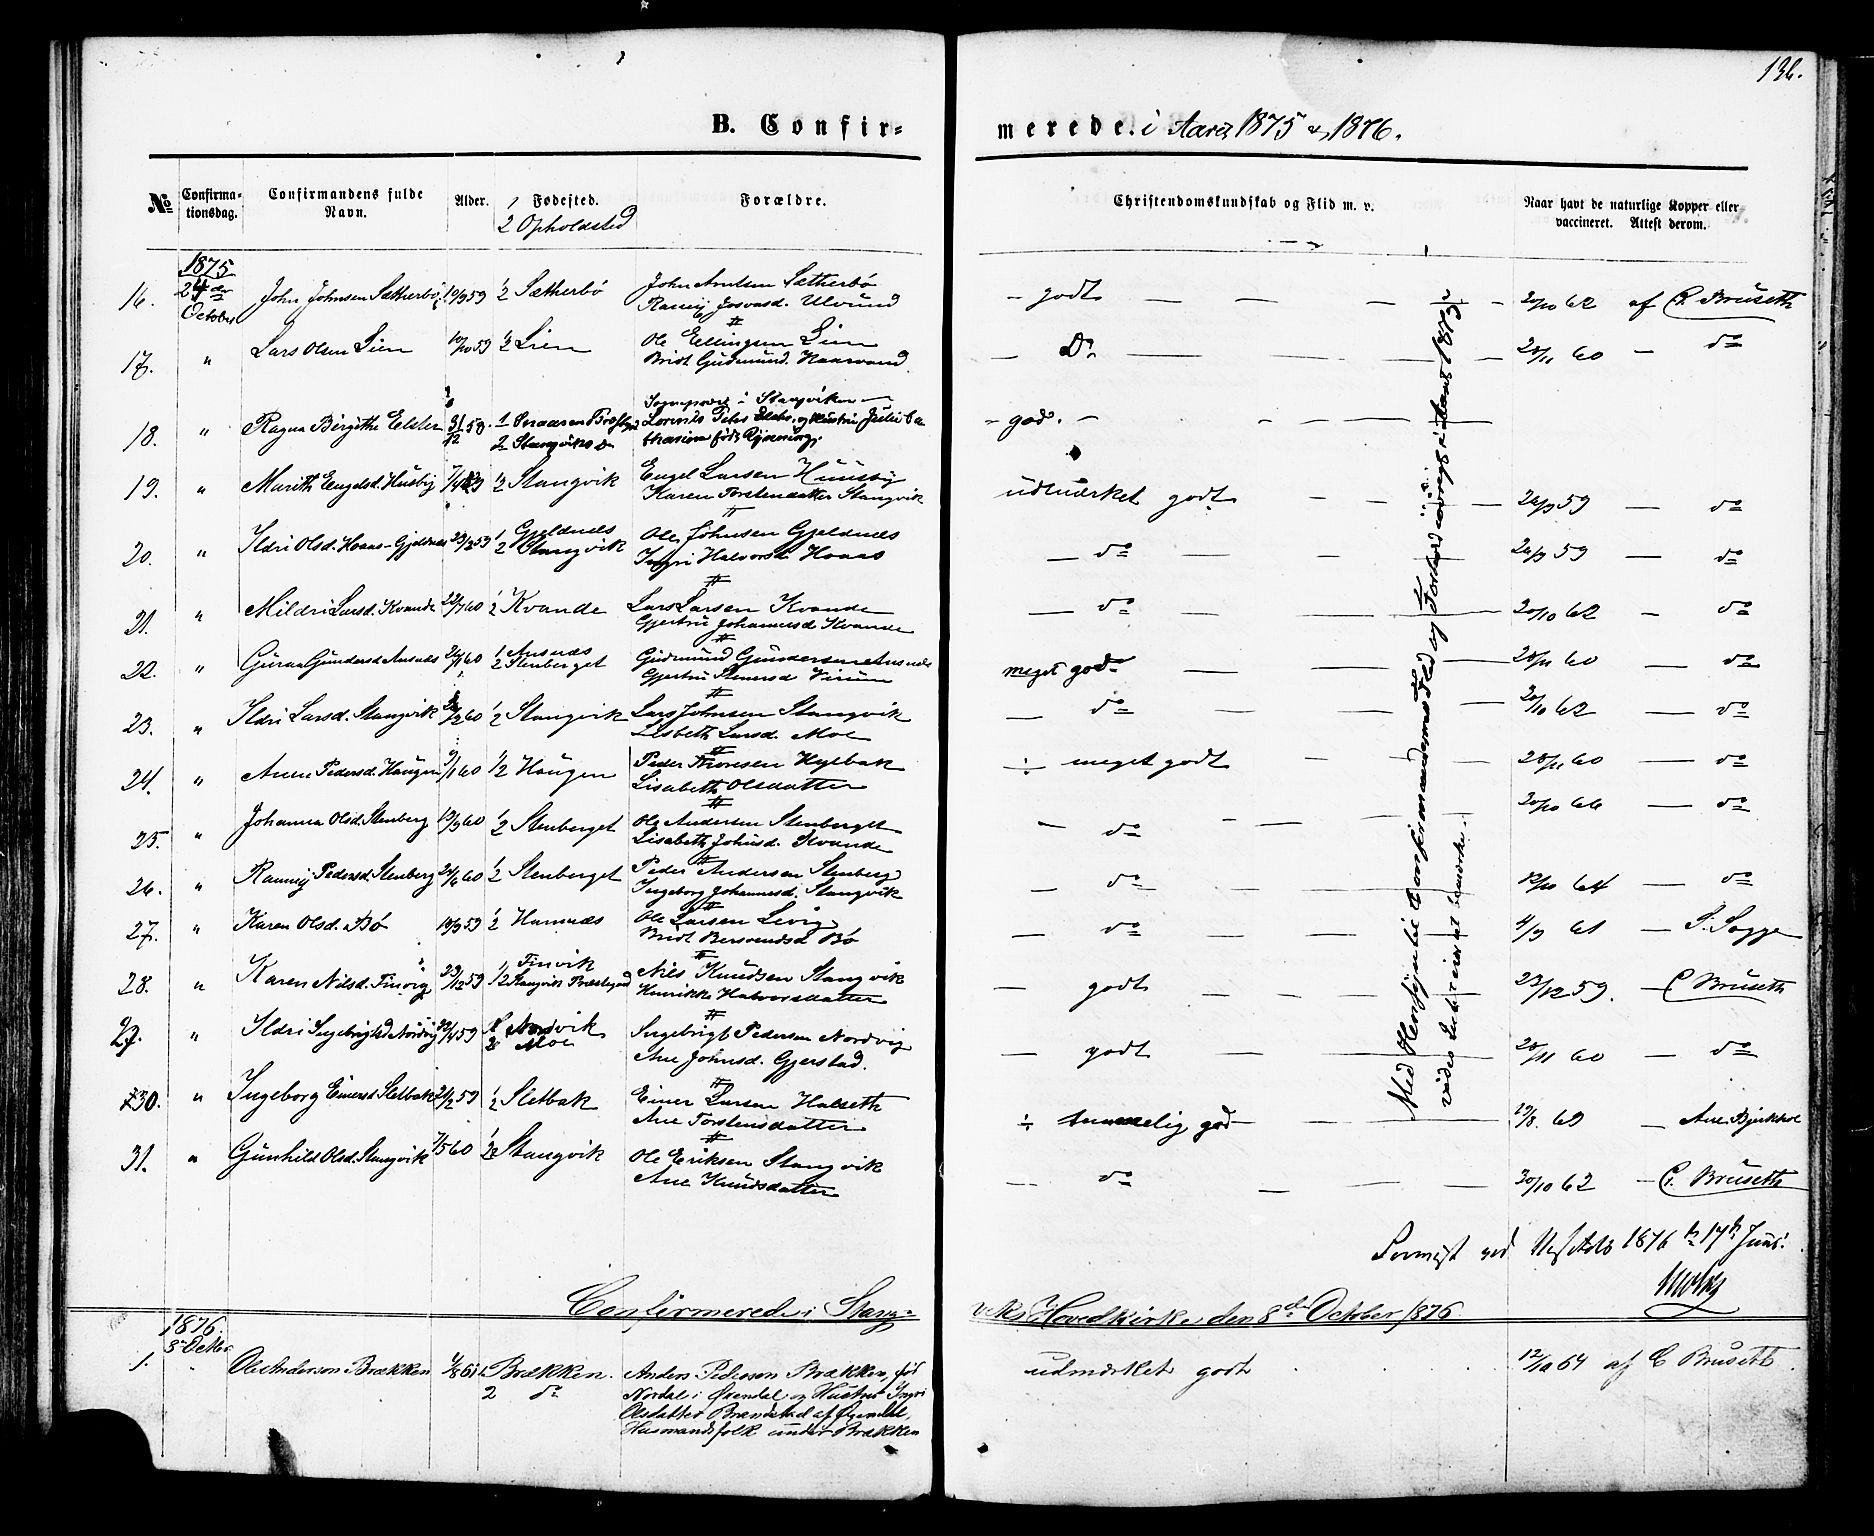 136.
B. Confir-
merede. i Aaret 1875 & 1876.
No
Confirma-
tionsdag.
Confirmandens fulde
Navn.
Alder.
1 Fødested.
2 Opholdsted
Forældre.
Christendomskundskab og Flid m. v.
Naar havt de naturlige Kopper eller
vaccineret. Attest derom.
1875
24de
October
16. John Johnsen Sætherbø 10/9 59 1/2 Sætherbø John Arntsen Sætherbø
Ulvund
godt 20/10 62 af C. Bruseth
17. " Lars Olsen Lien 10/10 59 1/2 Lien Ole Ellingsen Lien
Brit Gudmund. Haarvand
Do 28/11 60 do
18. " Ragna Birgithe Elster 31/12 58 1 Præstgd
2 Stangviks do
Sognepræst i Stangviken
Lorents Peter Elster og Hustru Julie Ca
tharina født Rynning.
god.
19. " Marith Engelsd. Husby 7/4 59 1/2 Stangvik Engel Larsen Huusby
Karen Torstensdatter Stangvik
udmærket godt 24/9 59 do
20. " Ildri Olsd. Hoaas-Gjeldnæs 23/12 59 1 Gjeldnæs
2 Stangvik
Ole Johnsen Gjeldnæs
Ingri Halvorsd. Hoaas
do 24/9 59 do
21. " Mildri Larsd. Kvande 22/7 60 1/2 Kvande Lars Larsen Kvande
Gjertru Johannesd Kvande
do 20/10 62 do
22. " Guran Gundersd Aasnæs 24/1 60 1 Aasnæs
2 Stenberget
Gudmund Gundersen Aasnæs
Gjertru
meget god 28/11 60 do
23. " Ildri Larsd. Stangvik /2 60 1/2 Stangvik Lars Johnsen Stangvik
Lisbeth Larsd. Moe
do 20/10 62 do
24. " Anen Pedersd. Haugen 9/1 60 1/2 Haugen Peder Thoresen Hylbak
Lisabeth Olsdatter
÷ meget godt 28/11 60 do
25. " Johanna Olsd. Stenberg 19/9 60 1/2 Stenberget Ole Andersen Stenberget
Lisabeth Johnsd. Kvande
do 20/10 66 do
26. " Rannej Pedersd. Stenberg 24/6 60 1/2 Stenberget Peder Andersen Stenberg
Ingeborg Johannesd. Stangvik
do 12/10 64 do
27. " Karen Olsd. Bø 19/9 59 1/2 Hamnæs Ole Larsen Levig
Brit Bersvendsd Bø
do 4/9 61 P. Sogge
28. " Karen Nilsd. Finvig 23/12 59 1 Finvik
2 Stangviks Præstegaard
Nils Knudsen Stangvik
Henrikke Halvorsdatter
godt 23/12 59. C Bruseth
29. " Ildri Ingebrigtsd Nordvig 30/4 59 1 Nordvik
2 Moe
Ingebrigt Pedersen Nordvig
Ane Johnsd. Gjerstad.
godt 28/11 60 do
30. " Ingeborg Einersd. Sletbak 24/2 59 1/2 Sletbak Einer Larsen Halseth
Ane Torstensdatter
÷ temmelig god 19/8. 69 Ane
31. " Gunhild Olsd. Stangvik 7/5 60 1/2 Stangvik Ole Eriksen Stangvik
Ane Knudsdatter
do 20/10 62 C. Bruseth
Med Hensyn til Confirmandernes Flid og Forhold øvrigt i Aaret 1875
vides Intet at bemærke.
ved 1876 17 Juni.
Confirmerede i Stang-
viks Hovedkirke den 8de October 1876
1876.
8de October
1. Ole Anderson Brækken 1/8 61 1. Brækken.
2 do
Anders Pedersen Brækken, fød
Nordal i Øxendal og Hustru Ingri
Olsdatter Brandstad af Øxendal,
Husmandsfolk under Brækken
udmærket godt 12/10 64 af C Bruseth.